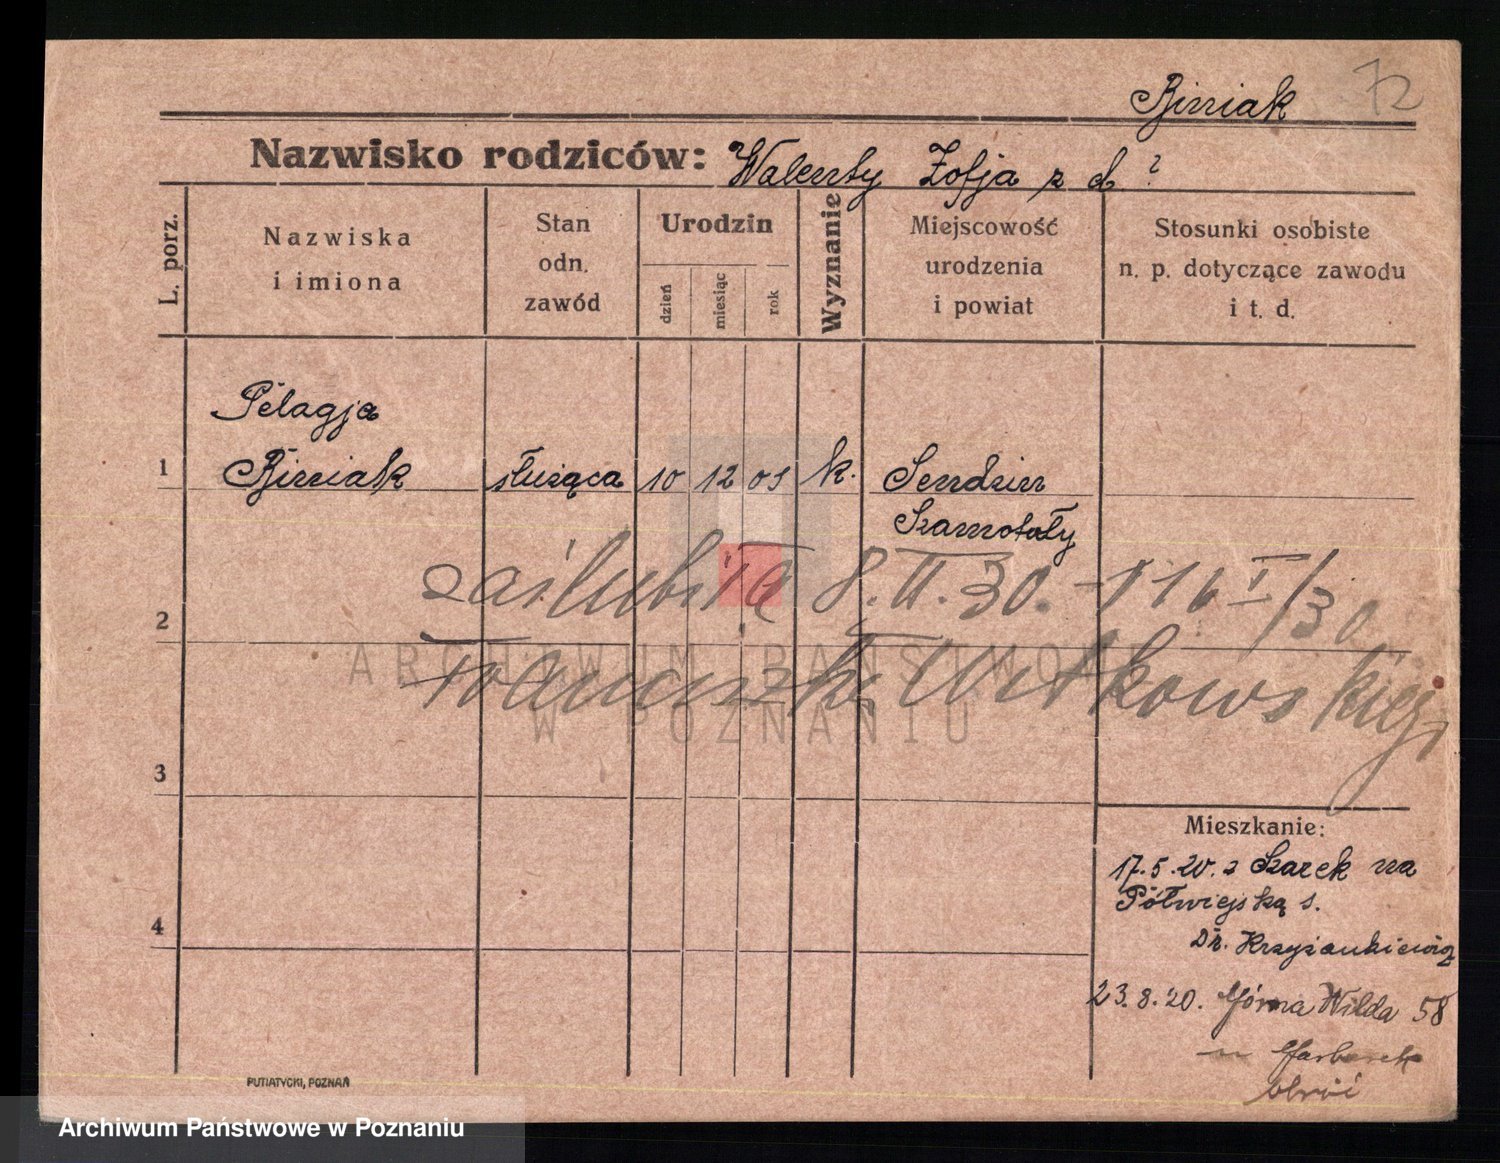 72
Birziak
Nazwisko rodziców: Walenty Zofja z d. ?
L. porz.
Nazwiska
i imiona
Stan
odn.
zawód
Urodzin
dzień
miesiąc
rok
Wyznanie
Miejscowość
urodzenia
i powiat
Stosunki osobiste
n. p. dotyczące zawodu
i t. d.
Pelagja
1 służąca 10 12 03 k. Sendzin
Szamotuły
zaślubiła 8.II.30. - 116 I/30
2
Franciszka Witkowskiego
ARCHIWUM PAŃSTWOWE
W POZNANIU
3
Mieszkanie:
17.5.20. z Szarek na
Półwiejską 5.
4
Dr. Krzyżankiewicz
23.8.20. Górna Wilda 58
PUTIATYCKI, POZNAŃ
Archiwum Państwowe w Poznaniu